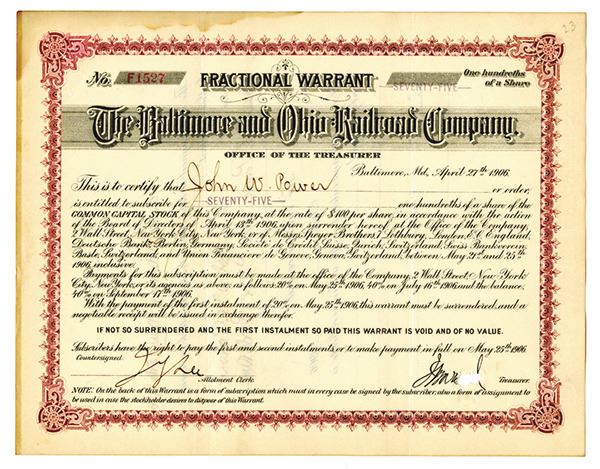 23
No. F1527 FRACTIONAL WARRANT SEVENTY-FIVE One hundreths
of a Share
The Baltimore and Ohio Railroad Company.
OFFICE OF THE TREASURER
Baltimore, Md., April 27th 1906.
This is to certify that John W. Power or order,
is entitled to subscribe for SEVENTY-FIVE one hundreths of a share of the
COMMON CAPITAL STOCK of this Company, at the rate of $100 per share, in accordance with the action
of the Board of Directors of April 13th 1906, upon surrender hereof at the Office of the Company,
2 Wall Street, New York City, New York, or of Messrs. Speyer Brothers, 7 Lothbury, London, E.C. England,
Deutsche Bank, Berlin, Germany, Societe de Credit Suisse, Zurich, Switzerland, Swiss Bankverein,
Basle, Switzerland, and Union Financiere de Geneve, Geneva, Switzerland, between May 21st and 25th
1906, inclusive.
Payments for this subscription must be made at the office of the Company, 2 Wall Street, New York
City, New York, or its agencies as above, as follows: 20% on May 25th 1906, 40% on July 16th 1906 and the balance,
40% on September 17th 1906.
With the payment of the first instalment of 20% on May 25th 1906, this warrant must be surrendered, and a
negotiable receipt will be issued in exchange therefor.
IF NOT SO SURRENDERED AND THE FIRST INSTALMENT SO PAID THIS WARRANT IS VOID AND OF NO VALUE.
Subscribers have the right to pay the first and second instalments, or to make payment in full on May 25th 1906.
Countersigned
Allotment Clerk. Treasurer.
NOTE. On the back of this Warrant is a form of subscription which must in every case be signed by the subscriber, also a form of assignment to
be used in case the stockholder desires to dispose of this Warrant.